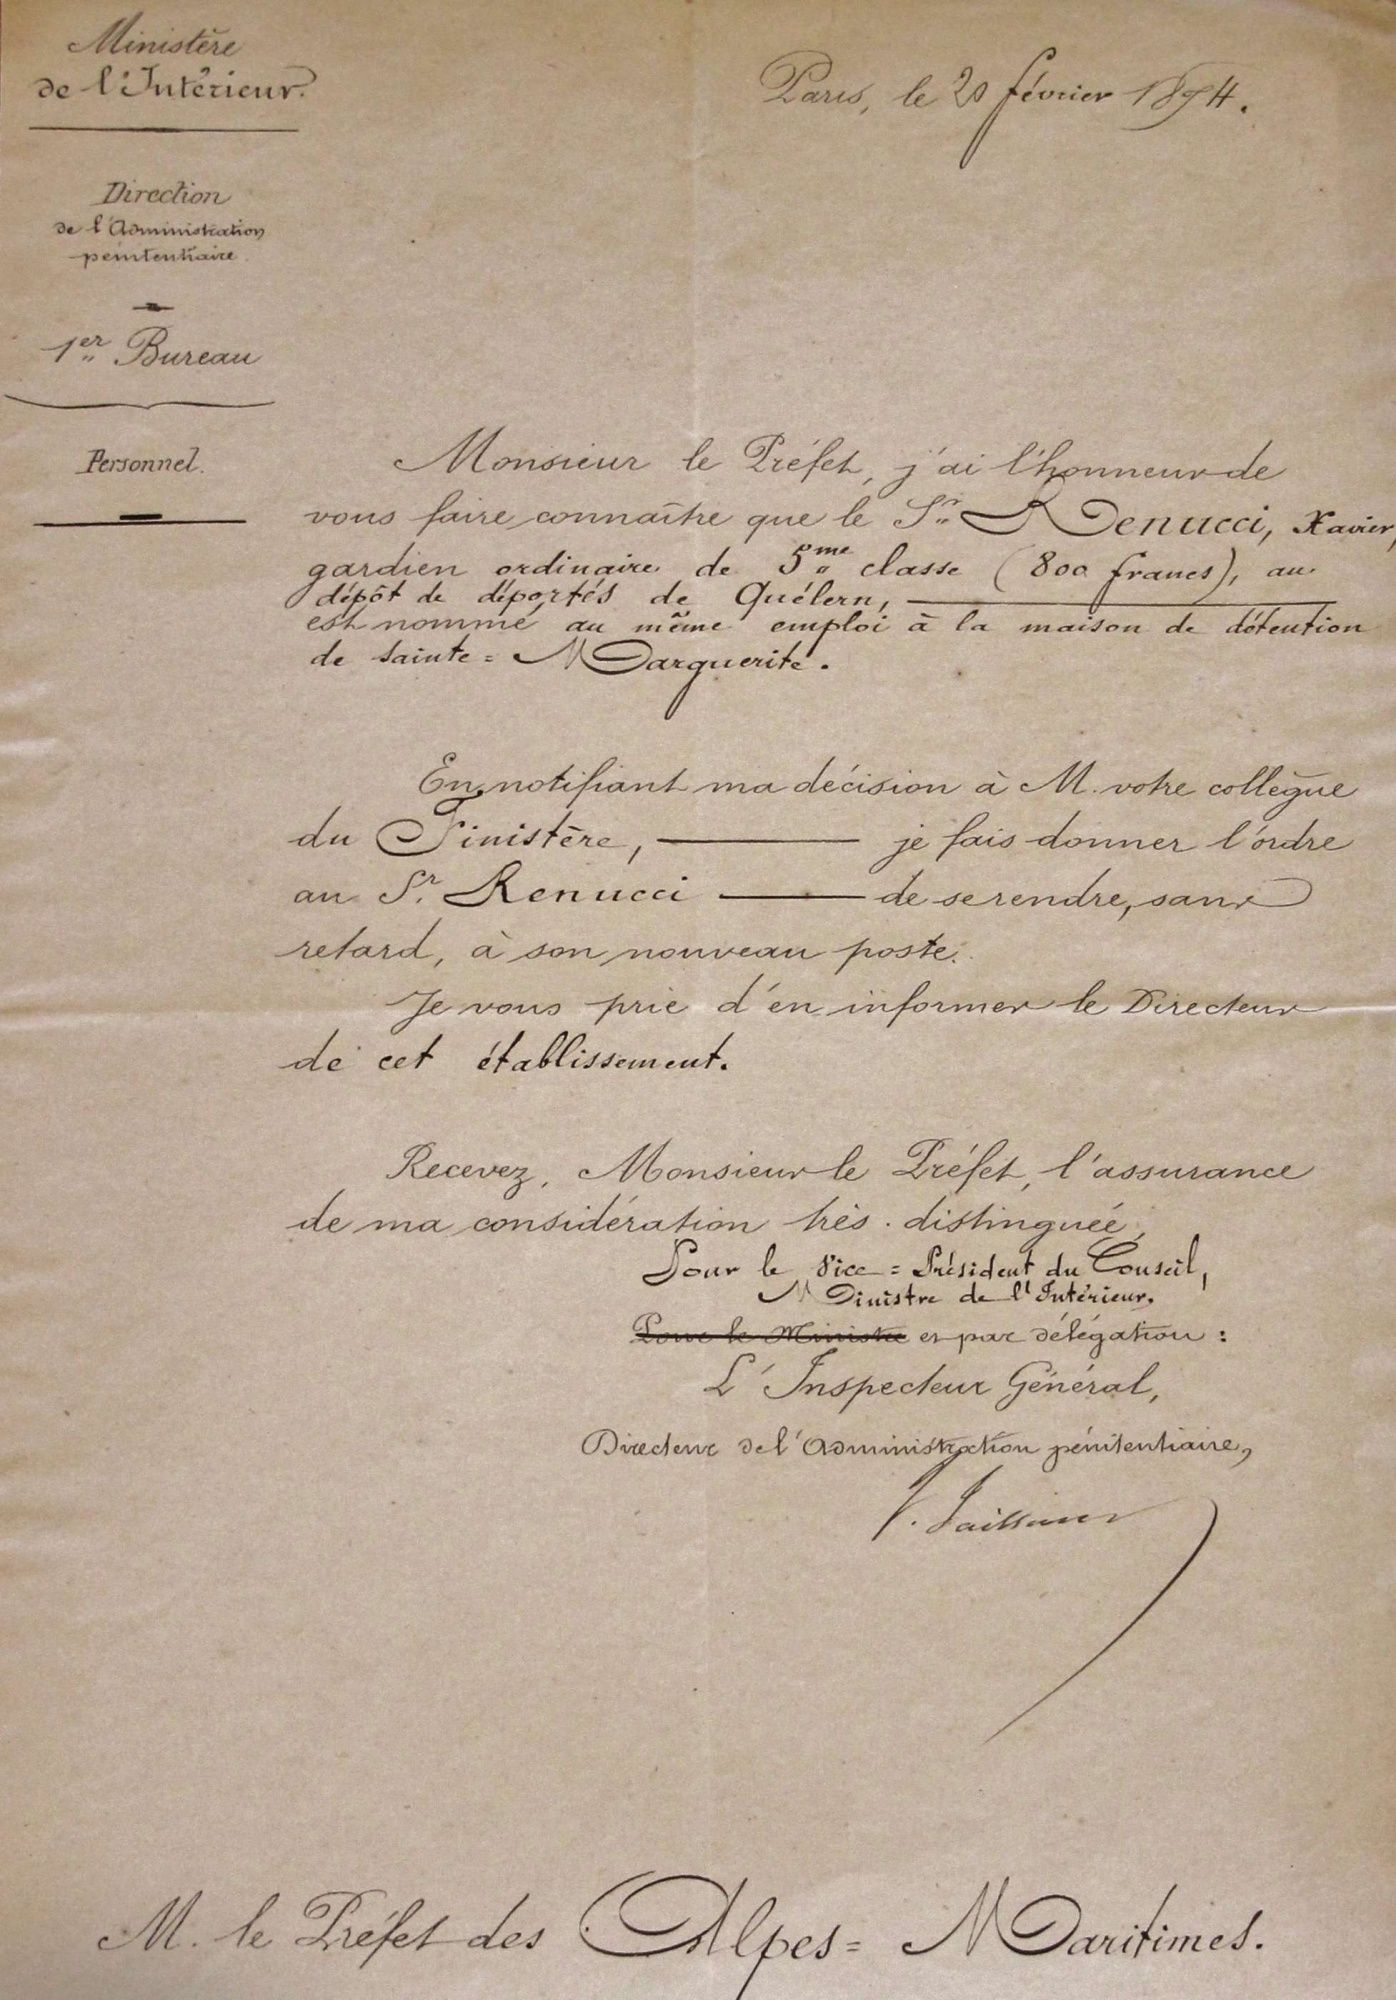 Ministère
de l'Intérieur.
Direction
de l'Administration
pénitentiaire.
1er Bureau
Personnel.
Paris, le 20 février 1874.
Monsieur le Préfet, j'ai l'honneur de
vous faire connaître que le Sr. Renucci, Xavier,
gardien ordinaire de 5me classe (800 francs), au
dépôt de déportés de Quélern,
est nommé au même emploi à la maison de détention
de Sainte=Marguerite.
En notifiant ma décision à M. votre collègue
du Finistère, je fais donner l'ordre
au Sr. Renucci de se rendre, sans
retard, à son nouveau poste.
Je vous prie d'en informer le Directeur
de cet établissement.
Recevez, Monsieur le Préfet, l'assurance
de ma considération très distinguée,
Pour le Vice=Président du Conseil,
Ministre de l'Intérieur,
Pour le Ministre et par délégation :
L'Inspecteur Général,
Directeur de l'Administration pénitentiaire,
M. le Préfet des Alpes=Maritimes.